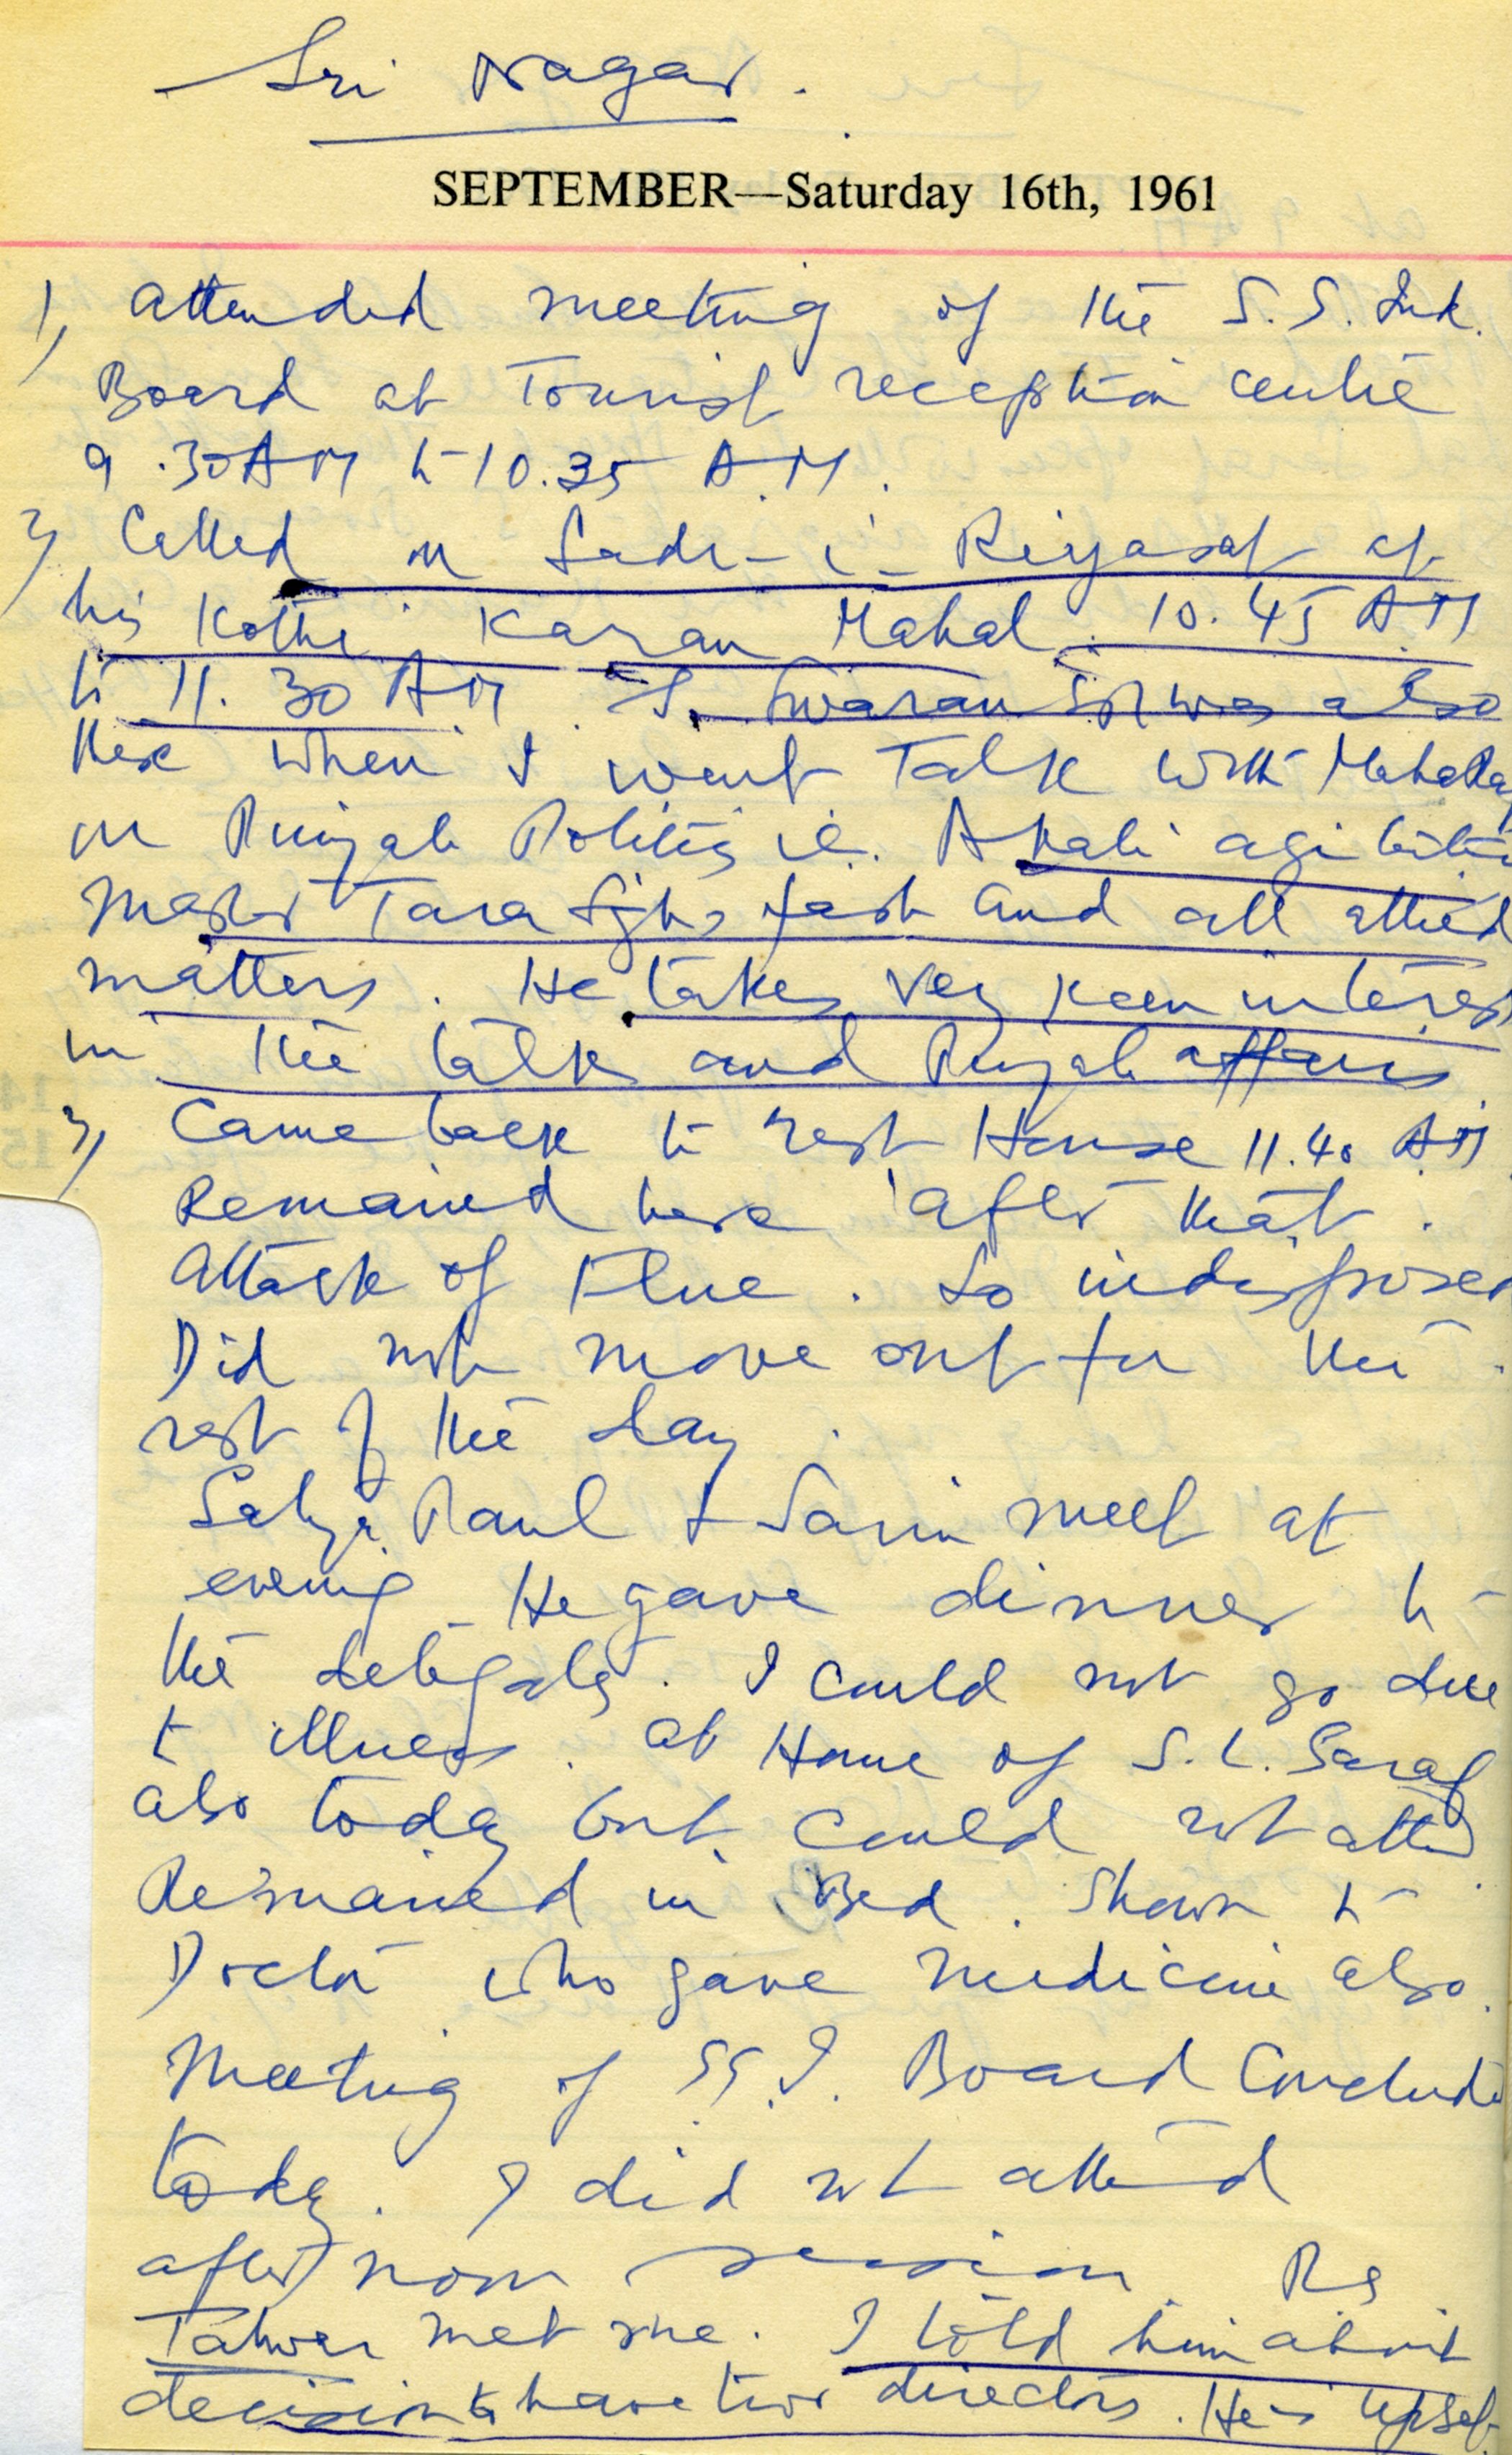 Sri Nagar.
SEPTEMBER—Saturday 16th, 1961
1) Attended meeting of the S.S. Ind.
Board at Tourist reception centre
9.30 AM to 10.35 A.M.
2) Called on Sadr-i-Riyasat at
his Kothi Karan Mahal. 10.45 A.M
to 11.30 A.M. S. Swaran Singh was also
there when I went Talk with MahaRaj
on Punjab Politics ie. Akali agitation
Master Tara Singh's fast and all allied
matters. He takes very keen interest
in the talk and Punjab affairs
3) Came back to rest House 11.40 AM
Remained here after that.
Attack of Flue. So indisposed
Did not move out for the
rest of the day.
Satya Paul & Sarin meet at
evening. He gave dinner to
the delegates. I could not go due
to illness. At Home of S. L. Saraf
also today but could not attend
Remained in Bed. Shown to
Doctor who gave medicine also.
Meeting of S.S.I. Board Concluded
today. I did not attend
after noon session.
Talwar met me. I told him about
decision to have two directors. He is upset